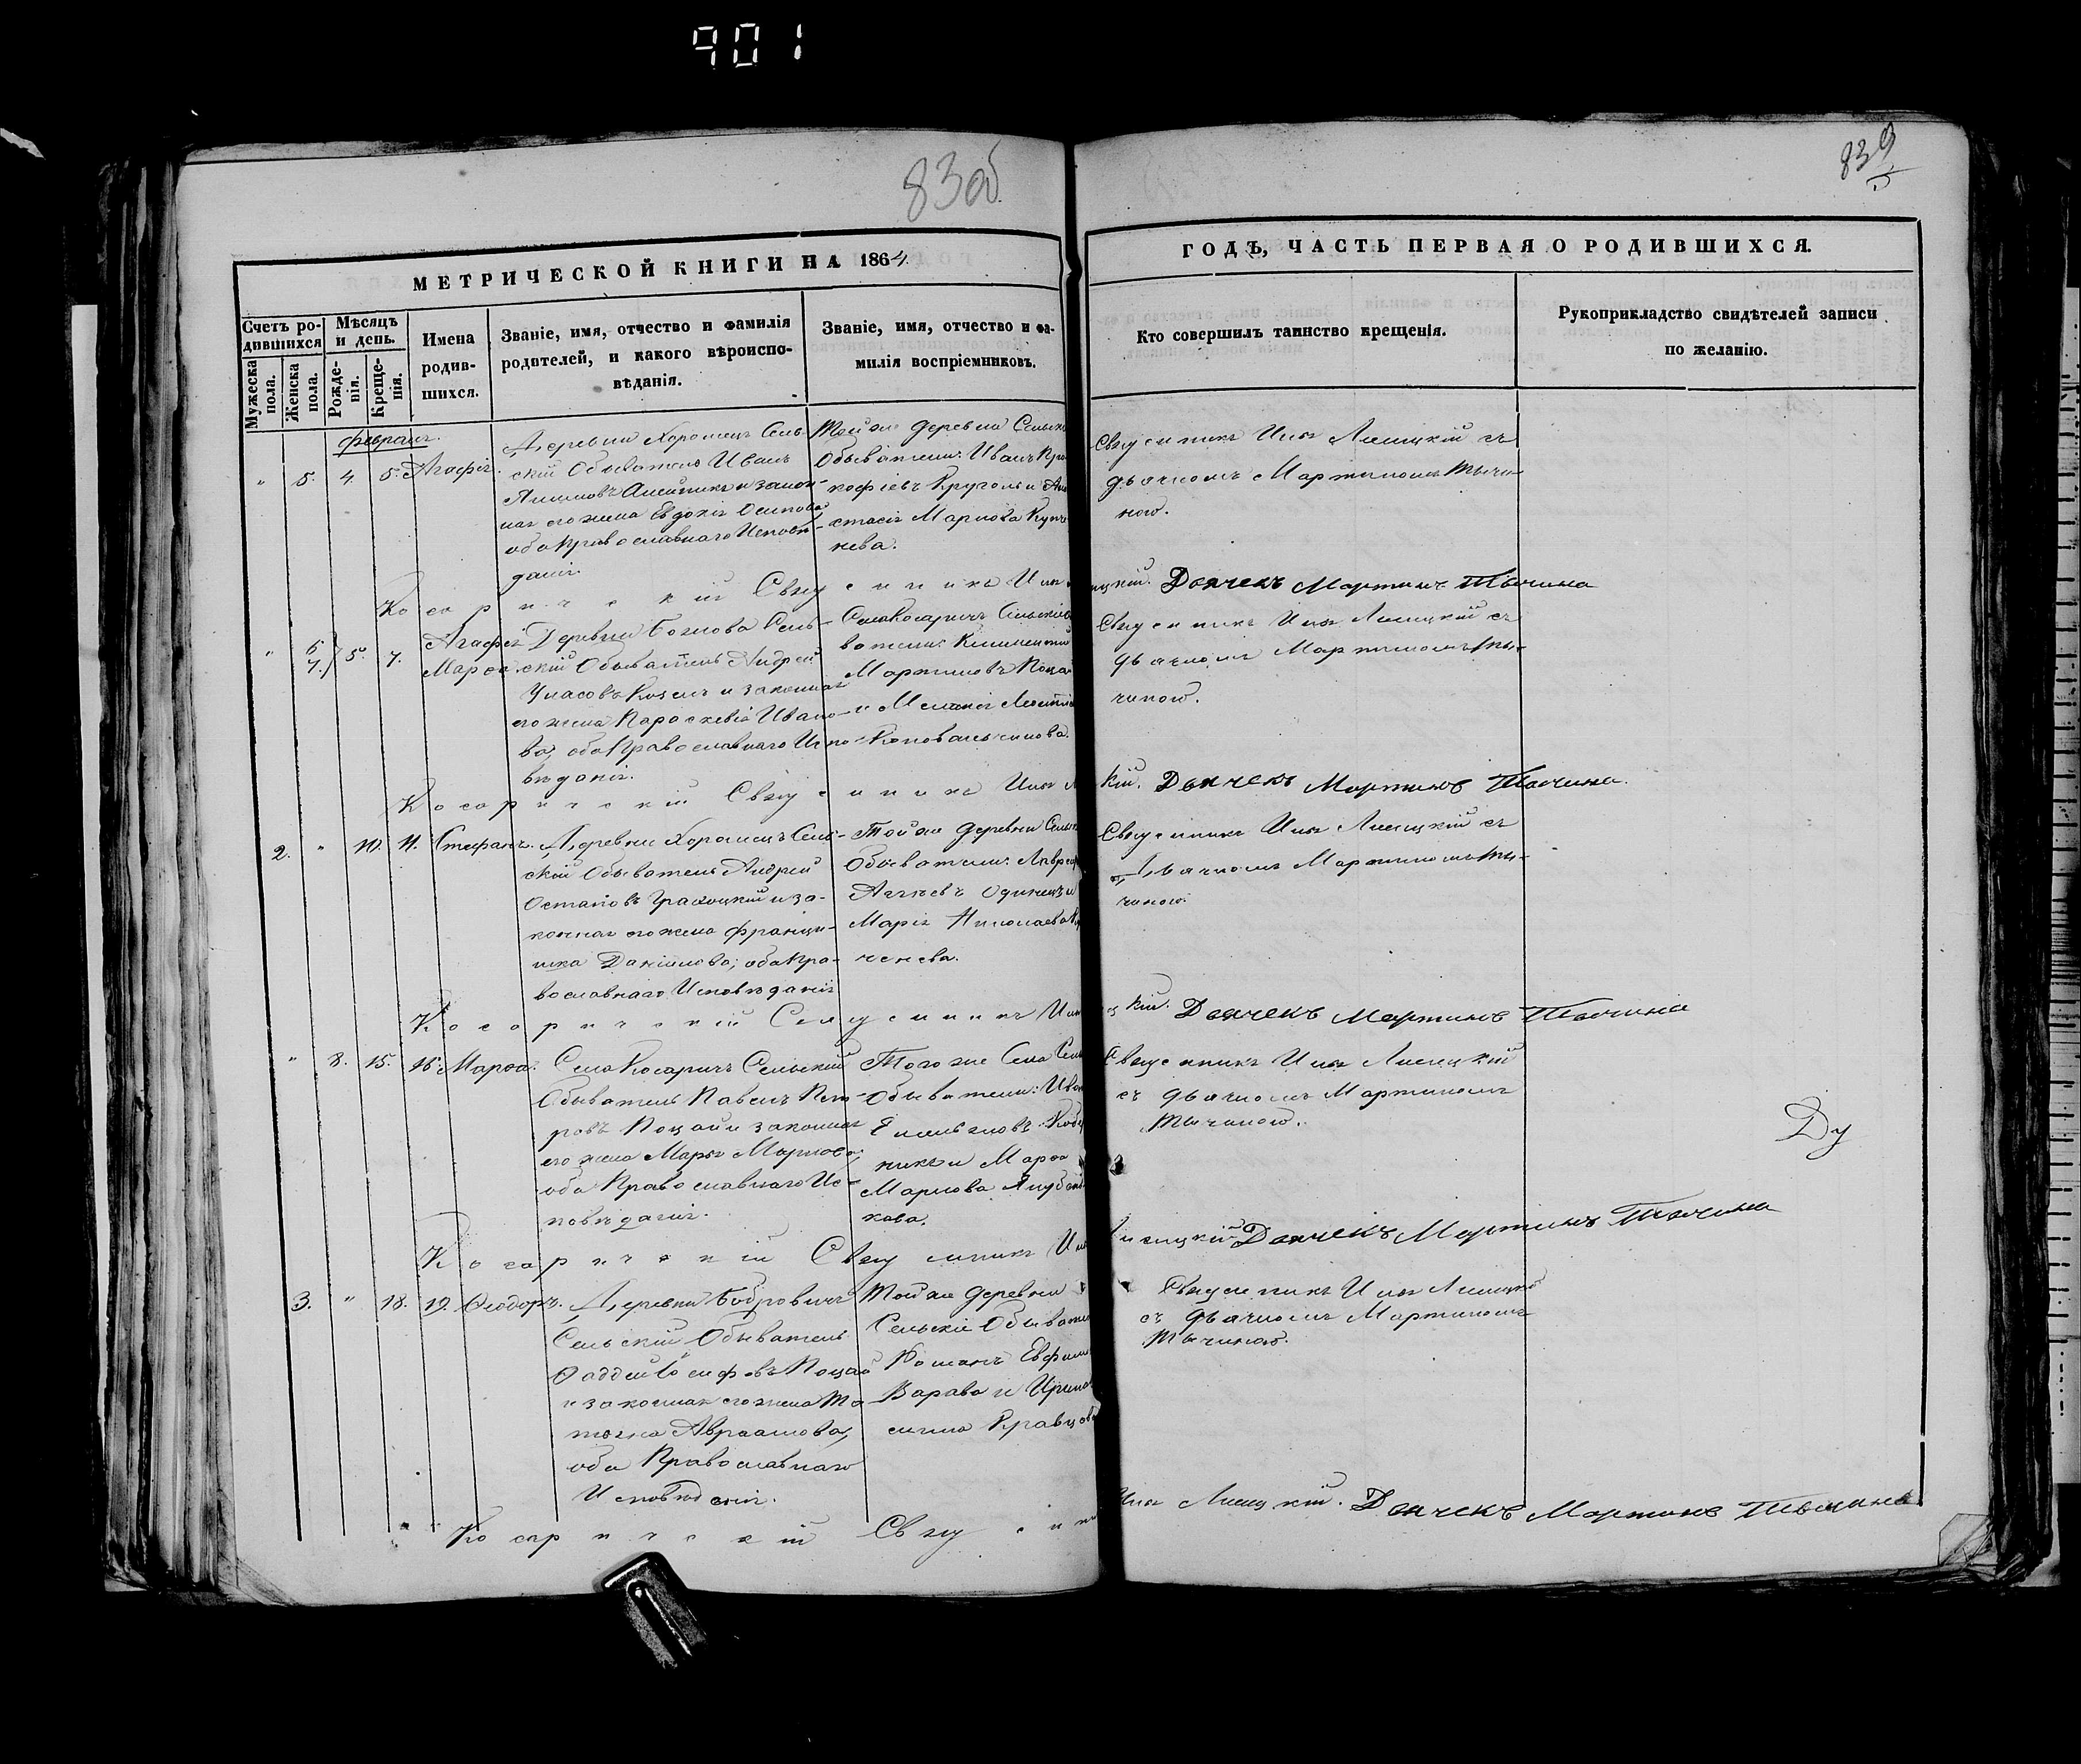 901
83об
839
МЕТРИЧЕСКОЙ КНИГИ НА 1864
ГОДЪ, ЧАСТЬ ПЕРВАЯ О РОДИВШИХСЯ.
Счетъ родившихся
Мужеска пола.
Женска пола.
Мѣсяцъ и день.
Рожденія.
Крещенія.
Имена родившихся.
Званіе, имя, отчество и фамилія
родителей, и какого вѣроиспо-
вѣданія.
Званіе, имя, отчество и фа-
милія воспріемниковъ.
Кто совершилъ таинство крещенія.
Рукоприкладство свидѣтелей записи
по желанію.
Февраль.
" 5. 4. 5. Агафія.
Деревни Хоромецъ Сель-
скій Обыватель Иванъ
и закон-
ная его жена Евдокія Осипова
оба Православнаго Исповѣ-
данія.
Той же деревни
Обыватели: Иванъ Про-
кофіевъ Круголь и
стасія Маркова
нева.
Священникъ Илья Лисицкій съ
дьячкомъ Мартиномъ Тычи-
ною.
Косаричскій Священникъ Илья
цкій. Дьячекъ Мартинъ Тычина
" 6. 7. 5. 7. Агафія
Марѳа
Деревни Сель-
скій Обыватель Андрей
Уласовъ Козелъ и законная
его жена Параскевія Ивано-
ва, оба Православнаго Испо-
вѣданія.
Села Косаричъ Сельскіе
ватели: Климентій
Мартиновъ Поцай
и Меланія
Коновальчикова.
Священникъ Илья Лисицкій съ
дьячкомъ Мартиномъ Ты-
чиною.
Косаричскій Священникъ Илья
кій. Дьячекъ Мартинъ Тычина.
2. " 10. 11. Стефанъ.
Деревни Хоромецъ Сель-
скій Обыватель Андрей
Остаповъ и за-
конная его жена Франци-
шка Даніилова; оба Пра-
вославнаго Исповѣданія
Той же деревни
Обыватели:
Одинецъ и
Марія Николаева
ченева.
Священникъ Илья Лисицкій съ
Дьячкомъ Мартиномъ Ты-
чиною.
Косаричскій Священникъ Илья
цкій. Дьячекъ Мартинъ Тычина
" 8. 15. 16. Марѳа.
Села Косаричъ Сельскій
Обыватель Павелъ Пет-
ровъ Поцай и законная
его жена Марья Маркова
оба Православнаго Ис-
повѣданія.
Того же Села
Обыватели:
Емельяновъ
никъ и Марѳа
Маркова
кова.
Священникъ Илья Лисицкій
съ дьячкомъ Мартиномъ
Тычиною.
Ду
Косаричскій Священникъ Илья
Лисицкій Дьячекъ Мартинъ Тычина
3. " 18. 19. Ѳеодоръ.
Деревни Бобровичъ
Сельскій Обыватель
Ѳаддей Іосифовъ Поцай
и законная его жена Та-
тіяна Авраамова,
оба Православнаго
Исповѣданія.
Той же деревни
Сельскіе
Романъ
Варава и
Кравцова
Священникъ Илья Лисицкій
съ дьячкомъ Мартиномъ
Тычиною.
Косаричскій Священникъ
Илья Лисицкій. Дьячекъ Мартинъ Тычина